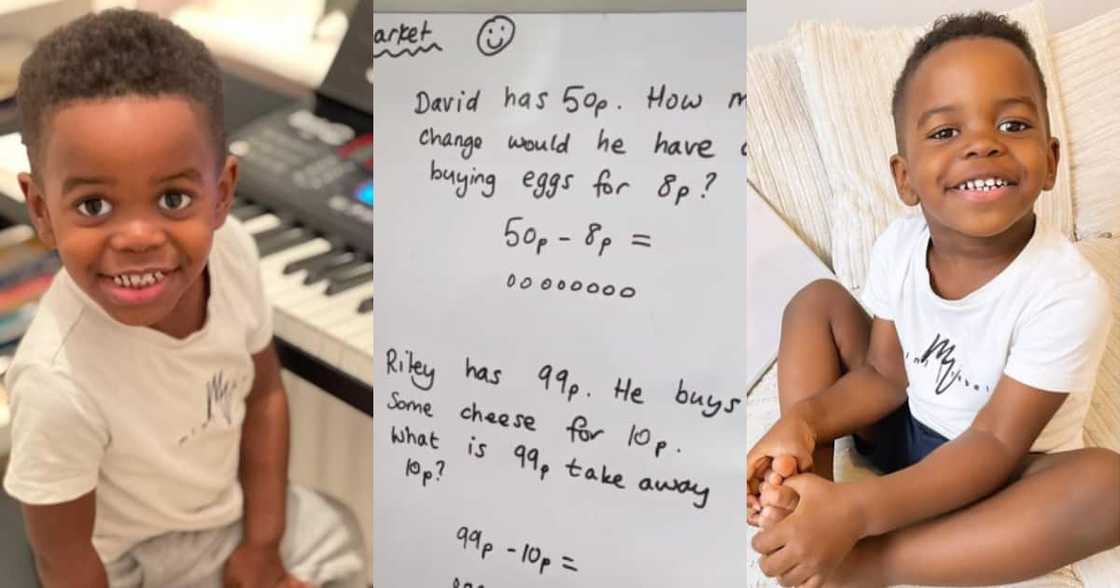 arket
David has 50p. How m
change would he have
buying eggs for 8p?
50p - 8p =
oooooooo
Riley has 99p. He buys
some cheese for 10p.
What is 99p take away
10p?
99p - 10p =